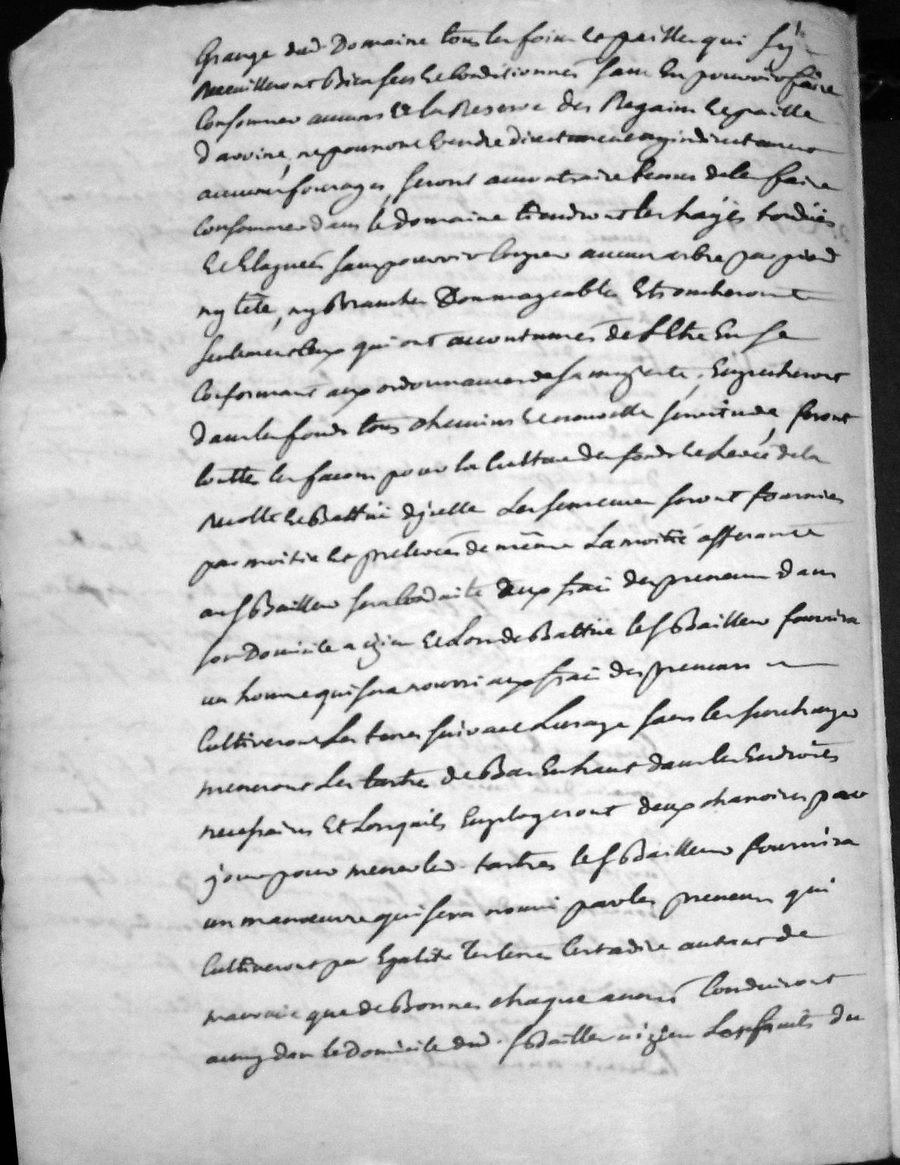 Grange dud Domaine tous les foins et pailles qui sy
Receuilleront Bien secs et Conditionnés sans En pouvoir faire
Consommer aucuns Et la Reserve des Regains et paille
d'avoine, ne pourront vendre directement ny indirectement
aucuns fourages, seront au contraire tenus de les faire
Consommer dans le domaine tiendront les hayës tondües
Et Elaguéës sans pouvoir Couper aucun arbre par pied
ny tête, ny Branches Dommageables Et toucheront
seulement Ceux qui ont accoutumés de L Etre En se
Conformant aux ordonnances de sa majesté, Empecheront
dans les fonds tous chemins et nouvelle servitude, feront
toutte les facons pour la Culture des fonds et Levéë de la
recolte et Battüë d'jcelle Les semences seront fournies
par moitié et prelevéës de même La moitié afferante
au s Bailleur sera Conduite aux frais des preneurs dans
son Domicile a izieu Et Lors de Battüe le s Bailleur fournira
un homme qui sera nourri aux frais des preneurs
Cultiveront Les terres suivant Lusage sans les surcharger
meneront Les tertres de Bas En haut dans les Endroits
necessaires Et Lorsquils Employeront deux charoires par
jour pour mener led tertres le s Bailleur fournira
un manœuvre qui sera nourri par les preneurs qui
Cultiveront par Egalité les terres Cestadire autant de
mauvaise que de Bonnes chaque année Conduiront
aussy dans le domicile dud. s Bailleur a izieu Les fruits du